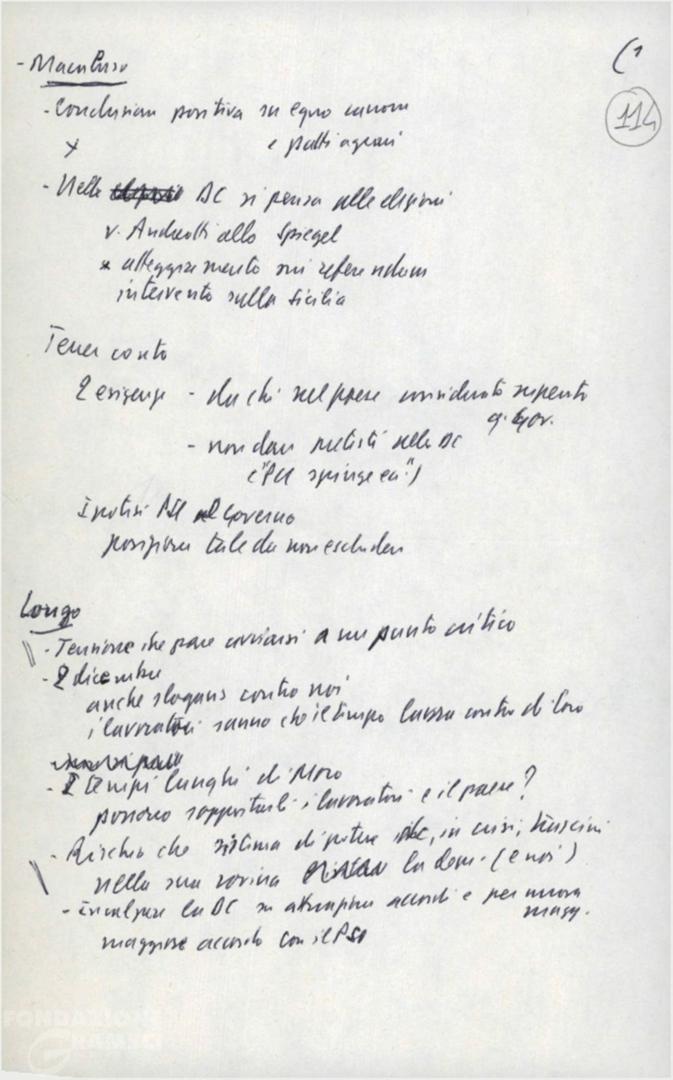 (1
114
- Macaluso
- Conclusione positiva su equo canone
x e patti agrari
- Nella DC si pensa alle elezioni
v. Andreotti allo Spiegel
x atteggiamento sui referendum
intervento sulla Sicilia
Tener conto
2 esigenze - da chi nel paese considerato
q. Gov.
- non dare pretesti alla DC
("PCI spinge ecc")
Ipotesi PCI al Governo
posizione tale da non escludere
Longo
- Tensione che pare avviarsi a un punto critico
- 2 dicembre
anche slogans contro noi
i lavoratori sanno che il tempo lavora contro di loro
- I tempi lunghi di Moro
possono sopportarli i lavoratori e il paese?
- Rischio che sistema di potere DC, in crisi, trascini
nella sua rovina la dem. (e noi)
- Incalzare la DC su attuazione accordi e per nuova
magg.
maggiore accordo con il PSI
FONDAZIONE
GRAMSCI